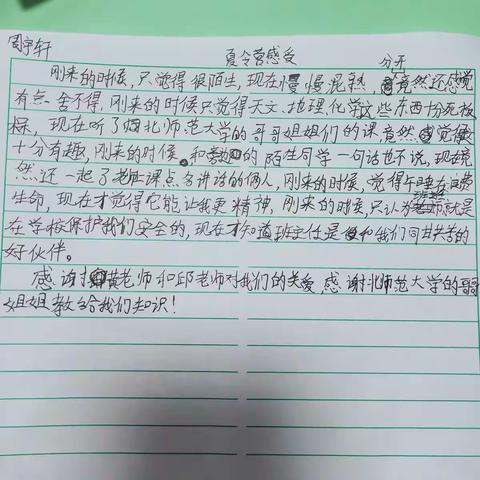 周宇轩
夏令营感受
分开
刚来的时候,只觉得很陌生,现在慢慢混熟,竟然还感觉
有点舍不得,刚来的时候只觉得天文、地理、化学这些东西十分死板
现在听了 北师范大学的哥哥姐姐们的课竟然感觉
十分有趣,刚来的时候,和旁边的陌生同学一句话也不说,现在竟
然还一起了老 课点名讲话的俩人,刚来的时候,觉得午睡在浪费
生命,现在才觉得它能让我更精神,刚来的时候,只认为老师就是
在学校保护我们安全的,现在才知道班主任是和我们同甘共苦的
好伙伴。
感谢 老师和邱老师对我们的关爱,感谢北师范大学的哥哥
姐姐教给我们知识!